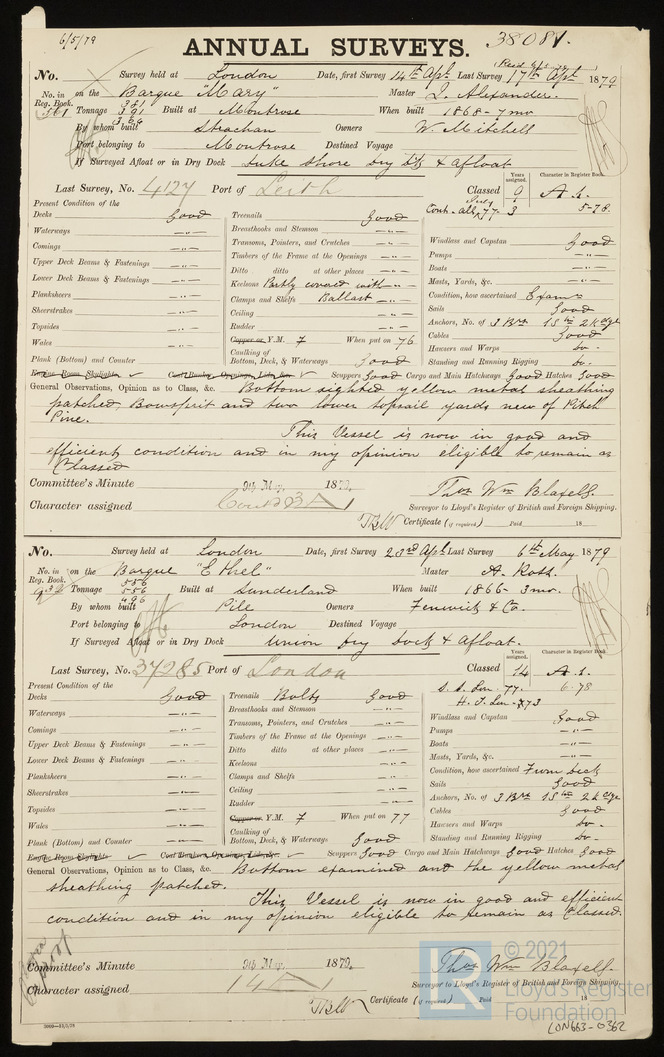 6/5/79
ANNUAL SURVEYS. 38081.
No. Survey held at London Date, first Survey 14th Apl. Last Survey 17th Apl. 1879
No. in Reg. Book. on the Barque "Mary" Master J. Alexander.
561 Tonnage 381 391 366 Built at Montrose When built 1868 - 7 mo
By whom built Strachan Owners W. Mitchell
Port belonging to Montrose Destined Voyage
If Surveyed Afloat or in Dry Dock Duke Shore Dry Dk & afloat
Last Survey, No. 4127 Port of Leith Classed Years assigned. 9 Character in Register Book. A 1.
Cont. 77 - 3 5-78.
Present Condition of the
Decks Good Treenails Good
Waterways -"- Breasthooks and Stemson -"-
Comings -"- Transoms, Pointers, and Crutches -"- Windlass and Capstan Good
Upper Deck Beams & Fastenings -"- Timbers of the Frame at the Openings -"- Pumps -"-
Lower Deck Beams & Fastenings -"- Ditto ditto at other places -"- Boats -"-
Planksheers -"- Keelsons Partly covered with -"- Masts, Yards, &c. -"-
Sheerstrakes -"- Clamps and Shelfs Ballast -"- Condition, how ascertained Examd
Topsides -"- Ceiling -"- Sails Good
Wales -"- Rudder -"- Anchors, No. of 3 Brs 1 Stm 2 Kedge
Plank (Bottom) and Counter -"- Copper or Y.M. 7 When put on 76 Cables Good
Caulking of Bottom, Deck, & Waterways Good Hawsers and Warps do -
Standing and Running Rigging do.
Engine Room Skylights ✓ Coal Bunker, Openings, Lids, &c. ✓ Scuppers Good Cargo and Main Hatchways Good Hatches Good
General Observations, Opinion as to Class, &c. Bottom sighted yellow metal sheathing
patched, Bowsprit and two lower topsail yards new of Pitch
Pine.
This Vessel is now in good and
efficient condition and in my opinion eligible to remain as
Classed
Committee's Minute 9th May, 1879. Thos Wm Blaxell.
Character assigned Contd 93 A 1 Surveyor to Lloyd's Register of British and Foreign Shipping.
TBW Certificate (if required) Paid 18
No. Survey held at London Date, first Survey 23rd Apl Last Survey 6th May 1879
No. in Reg. Book. on the Barque "Ethel" Master A. Ross.
932 Tonnage 556 556 496 Built at Sunderland When built 1866 - 3 mo.
By whom built Pile Owners Fenwick & Co.
Port belonging to London Destined Voyage
If Surveyed Afloat or in Dry Dock Union Dry Dock & afloat.
Last Survey, No. 37285 Port of London Classed Years assigned. 14 Character in Register Book. A 1.
S. S. Lon - 77. 6-78
H. T. Lon - 73
Present Condition of the
Decks Good Treenails Bolts Good
Waterways -"- Breasthooks and Stemson -"- Windlass and Capstan Good
Comings -"- Transoms, Pointers, and Crutches -"- Pumps -"-
Upper Deck Beams & Fastenings -"- Timbers of the Frame at the Openings -"- Boats -"-
Lower Deck Beams & Fastenings -"- Ditto ditto at other places -"- Masts, Yards, &c. -"-
Planksheers -"- Keelsons -"- Condition, how ascertained From Deck
Sheerstrakes -"- Clamps and Shelfs -"- Sails Good
Topsides -"- Ceiling -"- Anchors, No. of 3 Brs 1 Stm 2 Kedge
Wales -"- Rudder -"- Cables Good
Plank (Bottom) and Counter -"- Copper or Y.M. 7 When put on 77 Hawsers and Warps do -
Caulking of Bottom, Deck, & Waterways Good Standing and Running Rigging do -
Engine Room Skylights ✓ Coal Bunkers, Openings, Lids, &c. ✓ Scuppers Good Cargo and Main Hatchways Good Hatches Good
General Observations, Opinion as to Class, &c. Bottom examined and the yellow metal
sheathing patched.
This Vessel is now in good and efficient
condition and in my opinion eligible to remain as Classed.
Committee's Minute 9th May, 1879. Thos Wm Blaxell.
Character assigned 14 A 1 Surveyor to Lloyd's Register of British and Foreign Shipping.
TBW Certificate (if required) Paid 18
LR © 2021 Lloyd's Register Foundation
LON663-0362